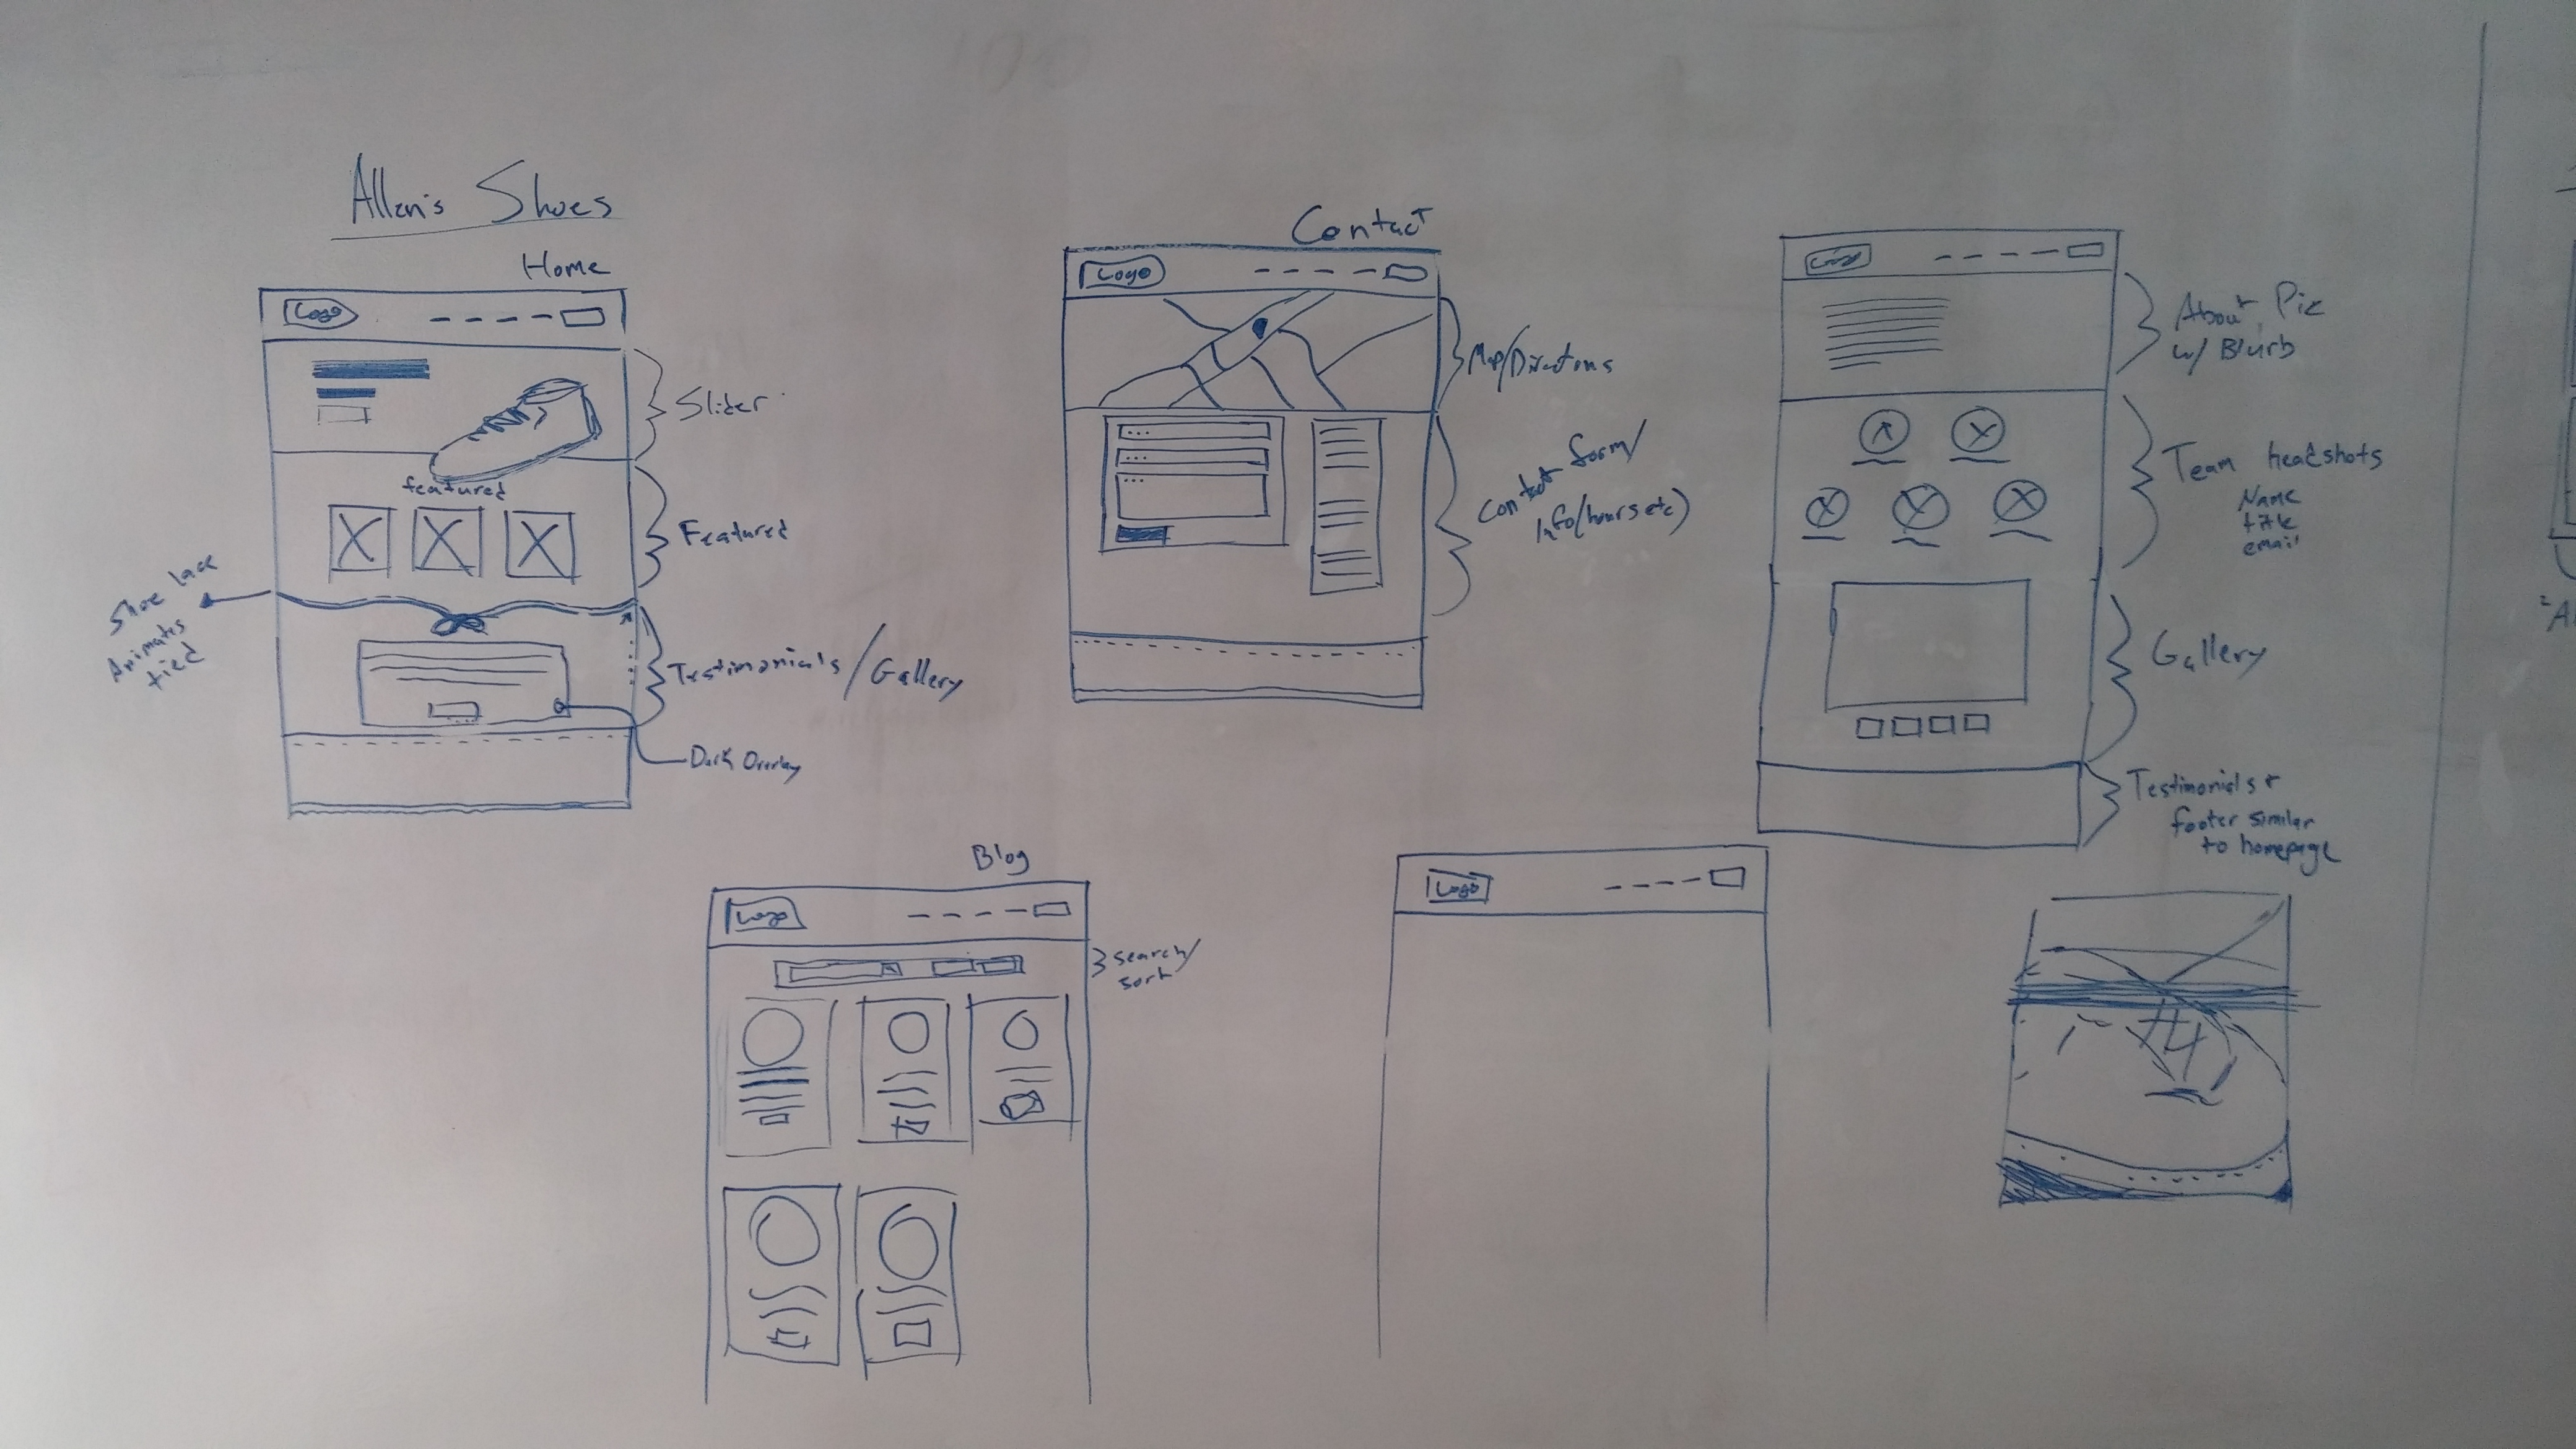 Allen's Shoes
Home
Logo
Slider
featured
Featured
Shoe lace
Animates
tied
Testimonials/Gallery
Dark Overlay
Contact
Logo
Map/Directions
Contact form/
Info(hours etc)
Logo
About Pic
w/ Blurb
Team headshots
Name
title
email
Gallery
Testimonials +
footer similar
to homepage
Blog
Logo
search/
sort
Logo